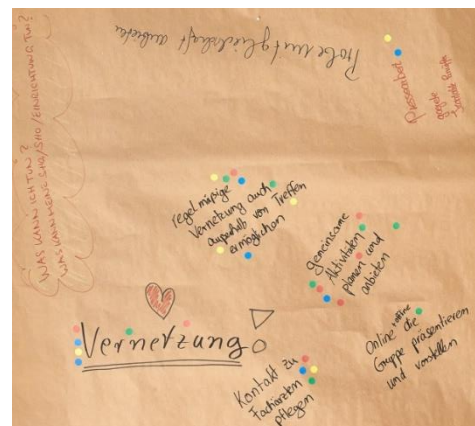 Probemitgliedschaft anbieten
WAS KANN ICH TUN?
WAS KANN MEINE SHG/SHO/EINRICHTUNG TUN?
Pressearbeit
regelmäßige
Vernetzung auch
außerhalb von Treffen
ermöglichen
gemeinsame
Aktivitäten
planen und
anbieten
Vernetzung
Kontakt zu
Fachärzten
pflegen
Online die
Gruppe präsentieren
und vorstellen